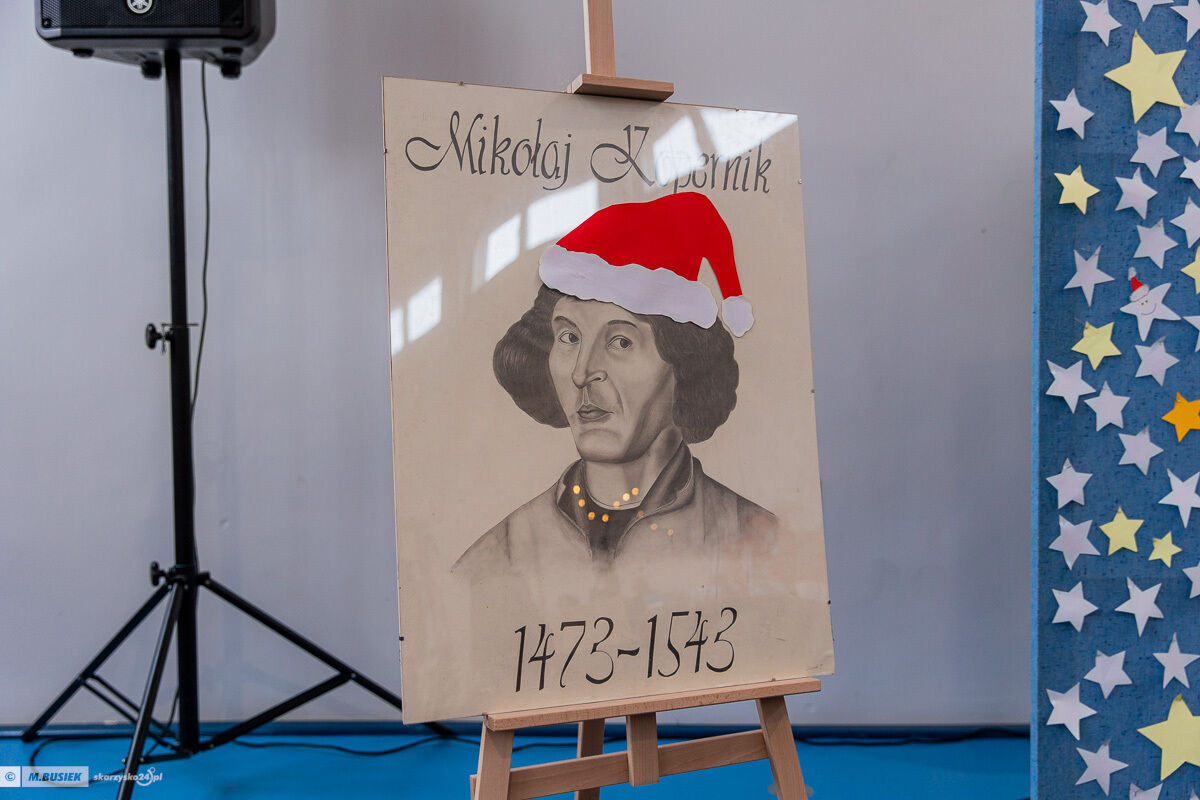 Mikołaj Kopernik
1473-1543
© M.BUSIEK skarzysko24.pl